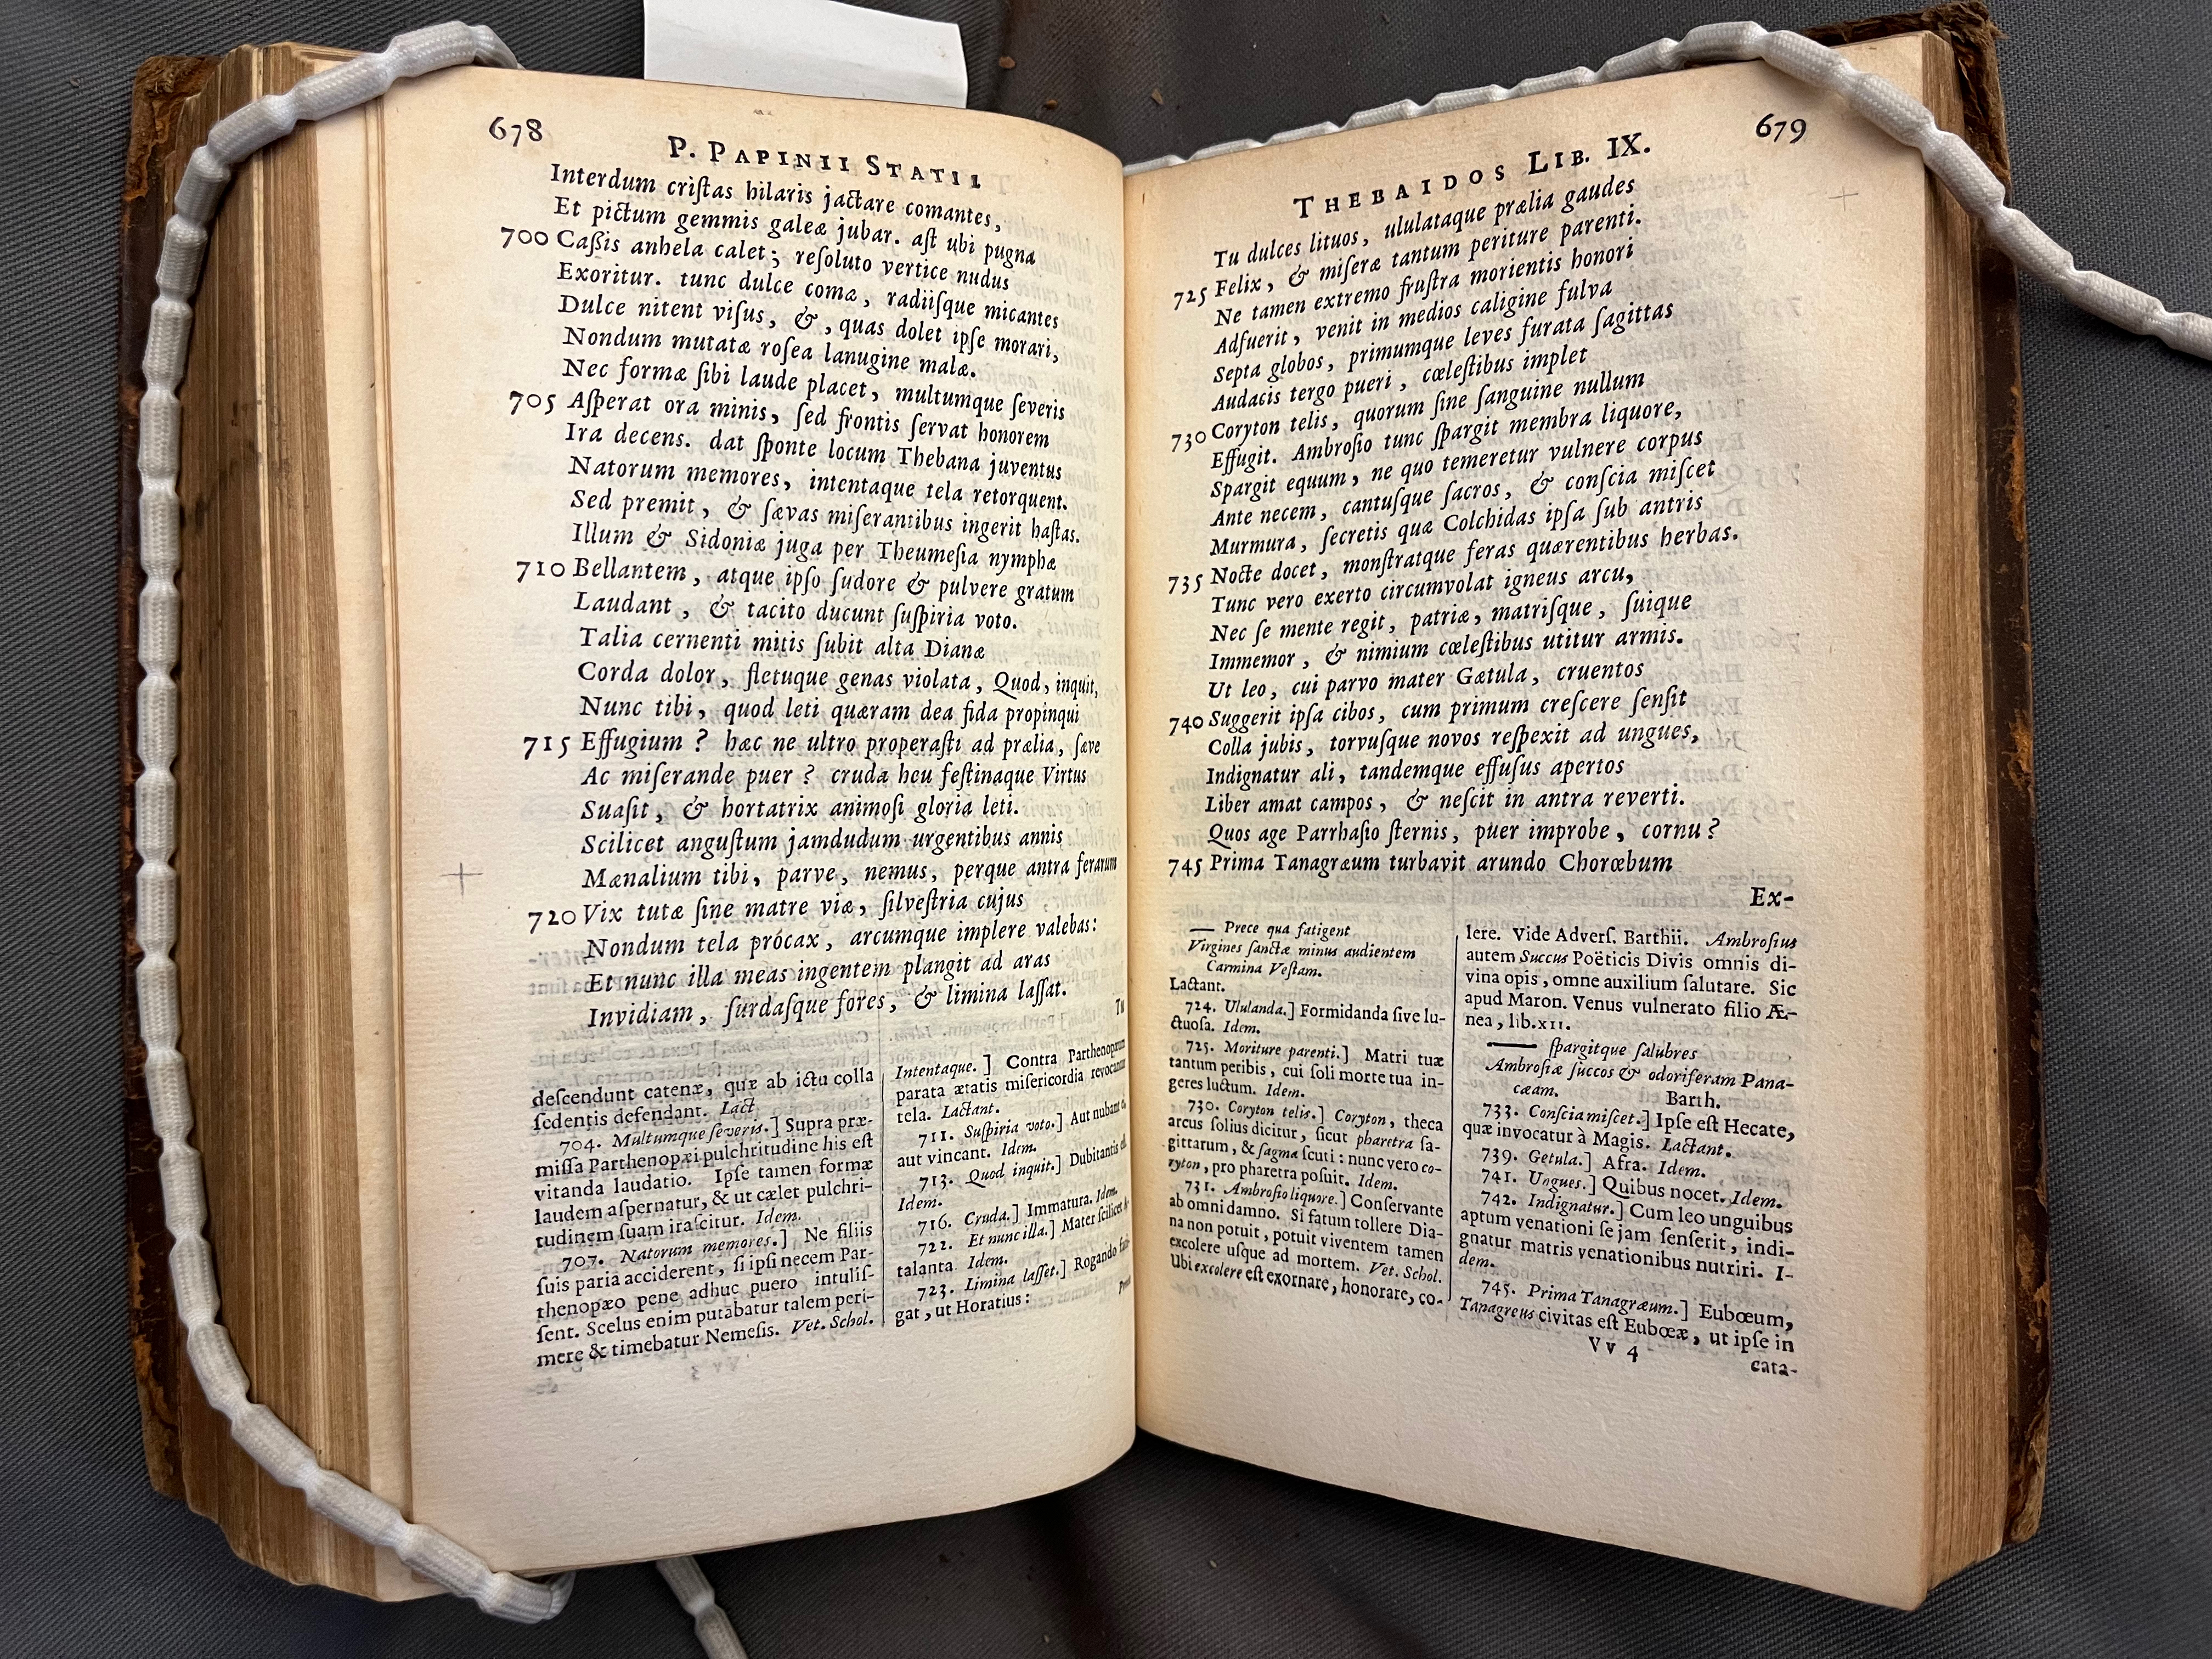 678
P. PAPINII STATII
Interdum criſtas hilaris jactare comantes,
Et pictum gemmis galeæ jubar. aſt ubi pugna
700 Caßis anhela calet; reſoluto vertice nudus
Exoritur. tunc dulce comæ, radiiſque micantes
Dulce nitent viſus, &, quas dolet ipſe morari,
Nondum mutatæ roſea lanugine malæ.
Nec formæ ſibi laude placet, multumque ſeveris
705 Aſperat ora minis, ſed frontis ſervat honorem
Ira decens. dat ſponte locum Thebana juventus
Natorum memores, intentaque tela retorquent.
Sed premit, & ſævas miſerantibus ingerit haſtas.
Illum & Sidoniæ juga per Theumeſia nymphæ
710 Bellantem, atque ipſo ſudore & pulvere gratum
Laudant, & tacito ducunt ſuſpiria voto.
Talia cernenti mitis ſubit alta Dianæ
Corda dolor, fletuque genas violata, Quod, inquit,
Nunc tibi, quod leti quæram dea fida propinqui
715 Effugium? hæc ne ultro properaſti ad prælia, ſæve
Ac miſerande puer? cruda heu feſtinaque Virtus
Suaſit, & hortatrix animoſi gloria leti.
Scilicet anguſtum jamdudum urgentibus annis
Mænalium tibi, parve, nemus, perque antra ferarum
720 Vix tutæ ſine matre viæ, ſilveſtria cujus
Nondum tela prócax, arcumque implere valebas:
Et nunc illa meas ingentem plangit ad aras
Invidiam, ſurdaſque fores, & limina laſſat.
Tu
deſcendunt catenæ, quæ ab ictu colla
ſedentis defendant. Lact
704. Multumque ſeveris.] Supra præ-
miſſa Parthenopæi pulchritudine his eſt
vitanda laudatio. Ipſe tamen formæ
laudem aſpernatur, & ut cælet pulchri-
tudinem ſuam iraſcitur. Idem.
707. Natorum memores.] Ne filiis
ſuis paria acciderent, ſi ipſi necem Par-
thenopæo pene adhuc puero intuliſ-
ſent. Scelus enim putabatur talem peri-
mere & timebatur Nemeſis. Vet. Schol.
Intentaque.] Contra Parthenopæum
parata ætatis miſericordia revocant
tela. Lactant.
711. Suſpiria voto.] Aut nubant
aut vincant. Idem.
713. Quod inquit.] Dubitantis
Idem.
716. Cruda.] Immatura. Idem.
722. Et nunc illa.] Mater ſcilicet
talanta Idem.
723. Limina laſſet.] Rogando
gat, ut Horatius:
679
THEBAIDOS LIB. IX.
Tu dulces lituos, ululataque prælia gaudes
725 Felix, & miſeræ tantum periture parenti.
Ne tamen extremo fruſtra morientis honori
Adfuerit, venit in medios caligine fulva
Septa globos, primumque leves furata ſagittas
Audacis tergo pueri, cœleſtibus implet
730 Coryton telis, quorum ſine ſanguine nullum
Effugit. Ambroſio tunc ſpargit membra liquore,
Spargit equum, ne quo temeretur vulnere corpus
Ante necem, cantuſque ſacros, & conſcia miſcet
Murmura, ſecretis quæ Colchidas ipſa ſub antris
735 Nocte docet, monſtratque feras quærentibus herbas.
Tunc vero exerto circumvolat igneus arcu,
Nec ſe mente regit, patriæ, matriſque, ſuique
Immemor, & nimium cœleſtibus utitur armis.
Ut leo, cui parvo mater Gætula, cruentos
740 Suggerit ipſa cibos, cum primum creſcere ſenſit
Colla jubis, torvuſque novos reſpexit ad ungues,
Indignatur ali, tandemque effuſus apertos
Liber amat campos, & neſcit in antra reverti.
Quos age Parrhaſio ſternis, puer improbe, cornu?
745 Prima Tanagræum turbavit arundo Chorœbum
Ex-
— Prece qua fatigent
Virgines ſanctæ minus audientem
Carmina Veſtam.
Lactant.
724. Ululanda.] Formidanda ſive lu-
ctuoſa. Idem.
725. Moriture parenti.] Matri tuæ
tantum peribis, cui ſoli morte tua in-
geres luctum. Idem.
730. Coryton telis.] Coryton, theca
arcus ſolius dicitur, ſicut pharetra ſa-
gittarum, & ſagma ſcuti: nunc vero co-
ryton, pro pharetra poſuit. Idem.
731. Ambroſio liquore.] Conſervante
ab omni damno. Si fatum tollere Dia-
na non potuit, potuit viventem tamen
excolere uſque ad mortem. Vet. Schol.
Ubi excolere eſt exornare, honorare, co-
lere. Vide Adverſ. Barthii. Ambroſius
autem Succus Poëticis Divis omnis di-
vina opis, omne auxilium ſalutare. Sic
apud Maron. Venus vulnerato filio Æ-
nea, lib.xII.
— ſpargitque ſalubres
Ambroſiæ ſuccos & odoriferam Pana-
cæam. Barth.
733. Conſcia miſcet.] Ipſe eſt Hecate,
quæ invocatur à Magis. Lactant.
739. Getula.] Afra. Idem.
741. Ungues.] Quibus nocet. Idem.
742. Indignatur.] Cum leo unguibus
aptum venationi ſe jam ſenſerit, indi-
gnatur matris venationibus nutriri. I-
dem.
745. Prima Tanagræum.] Eubœum,
Tanagreus civitas eſt Eubœæ, ut ipſe in
Vv 4
cata-